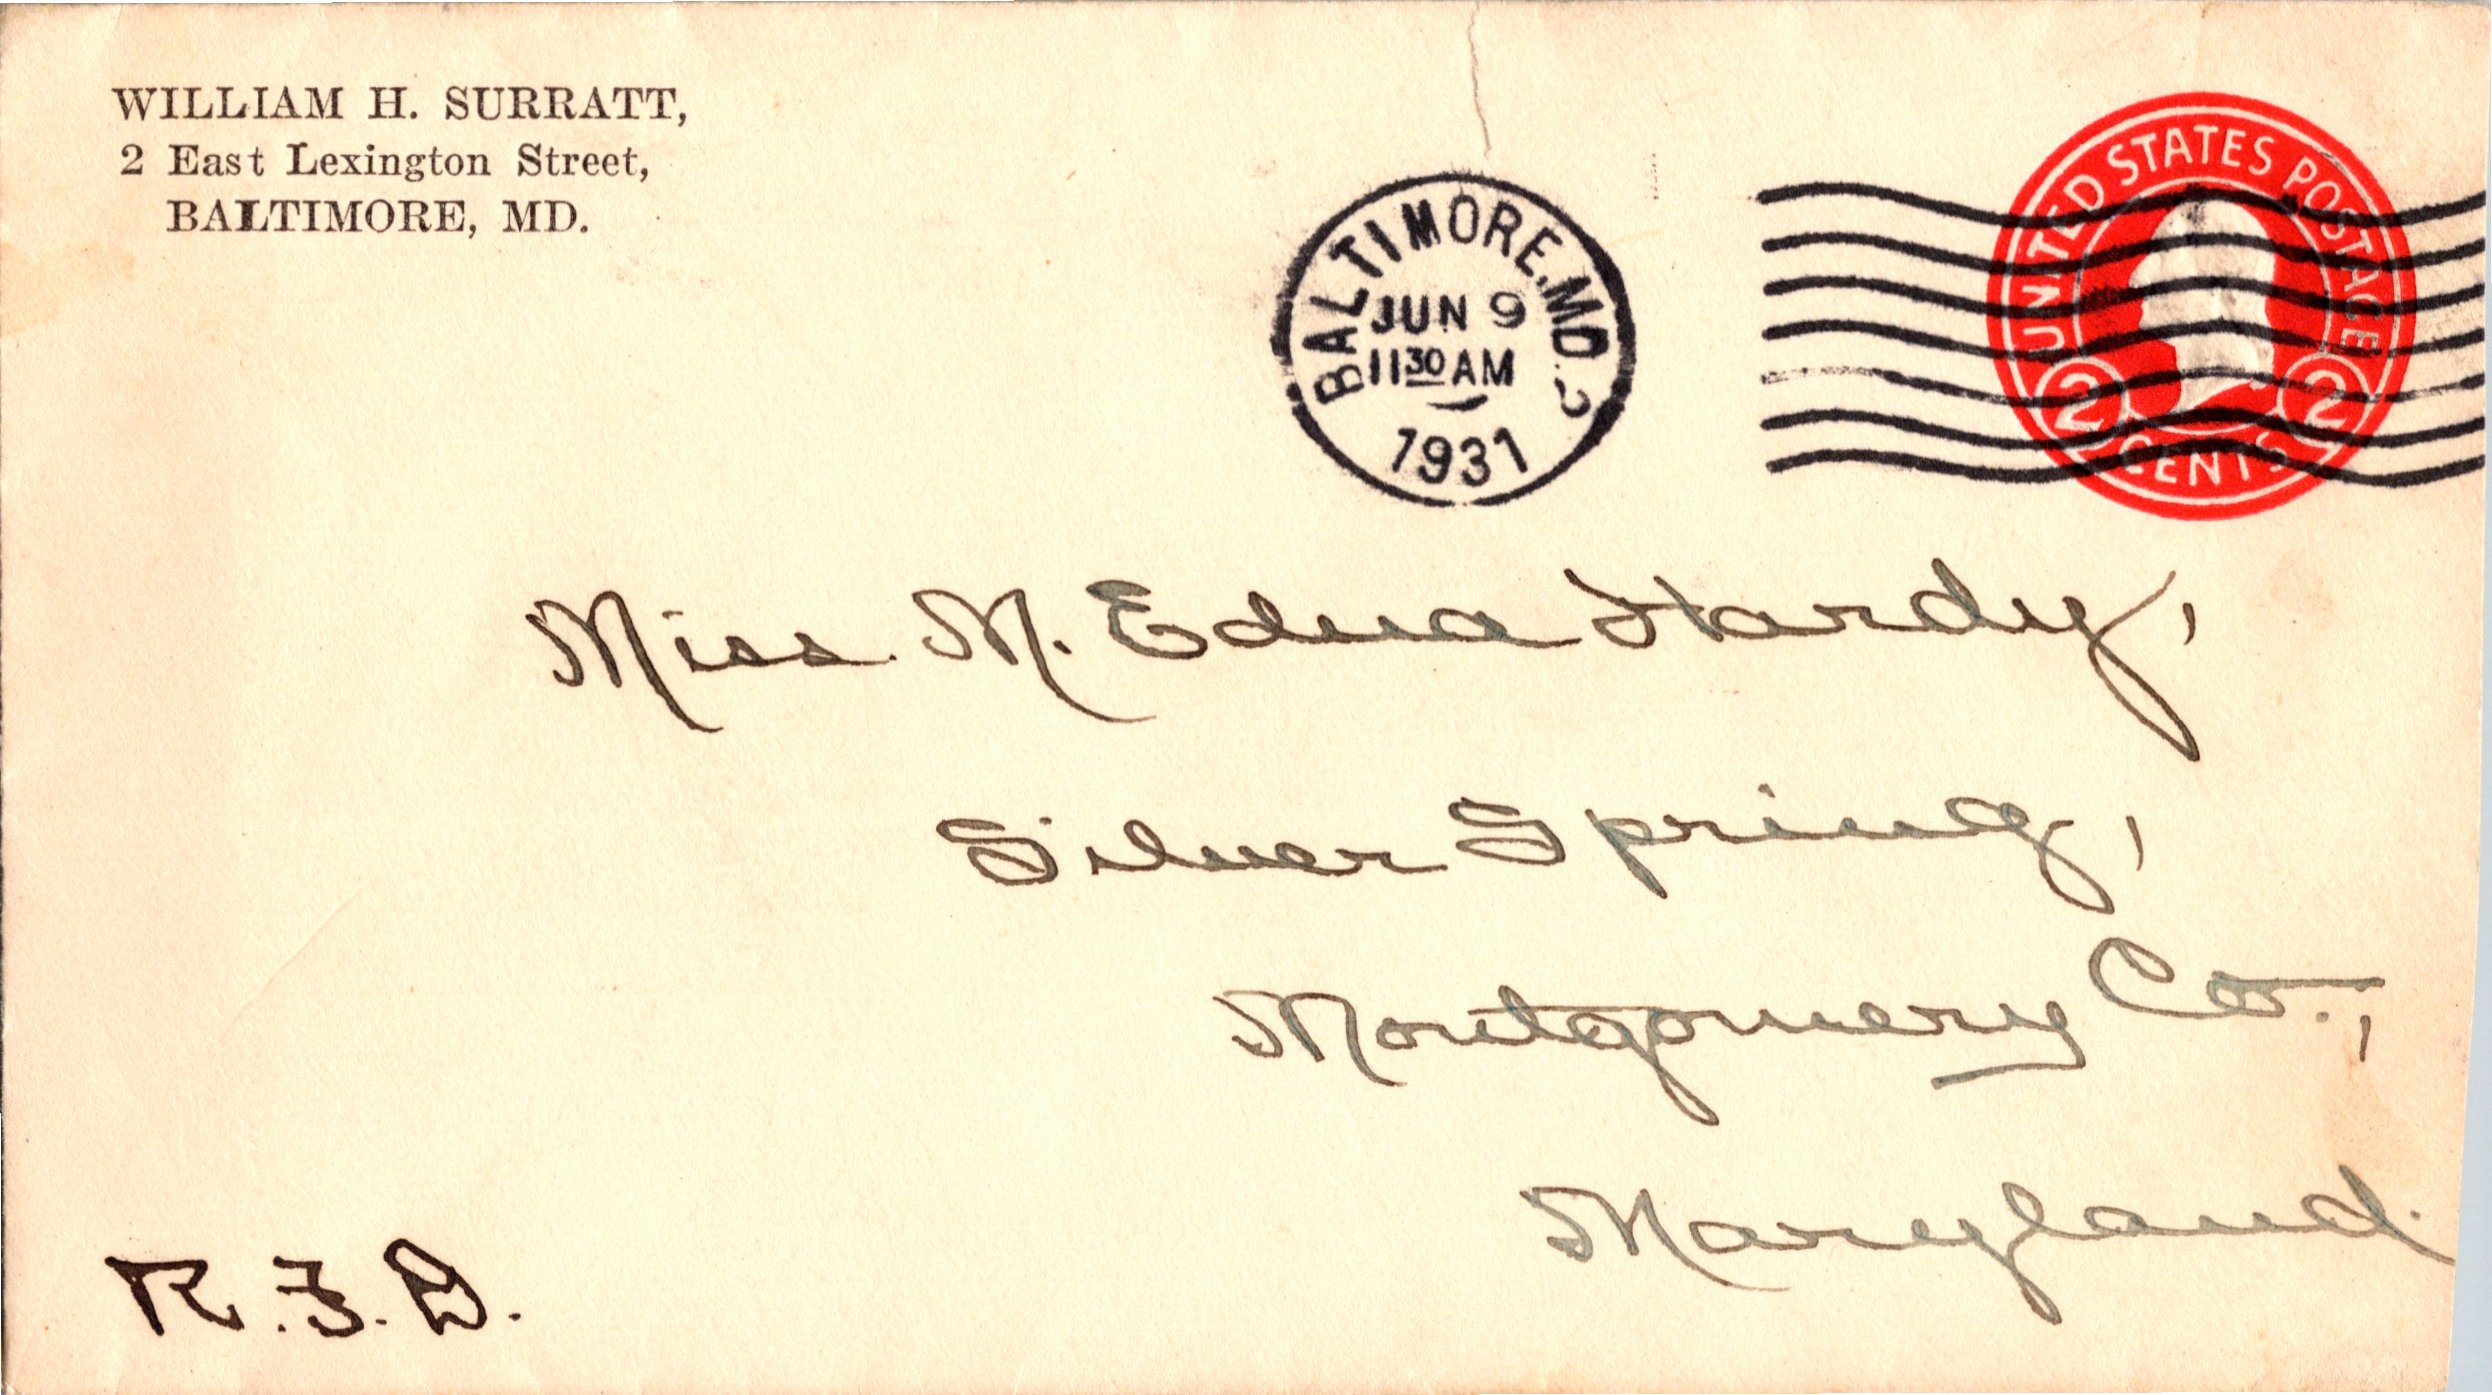 WILLIAM H. SURRATT,
2 East Lexington Street,
BALTIMORE, MD.
BALTIMORE, MD.
JUN 9
11 30 AM
1931
UNITED STATES POSTAGE
2 CENTS 2
Miss M. Edna Hardy,
Silver Spring,
Montgomery Co.,
Maryland.
R.F.D.